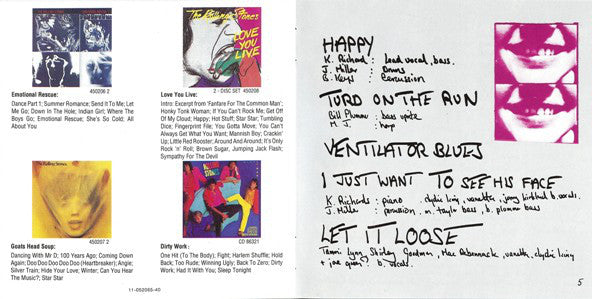 450206 2
Emotional Rescue:
Dance Part 1; Summer Romance; Send It To Me; Let
Me Go; Down In The Hole; Indian Girl; Where The
Boys Go; Emotional Rescue; She's So Cold; All
About You
The Rolling Stones
LOVE
YOU
LIVE
2 - DISC SET 450208
Love You Live:
Intro: Excerpt from 'Fanfare For The Common Man';
Honky Tonk Woman; If You Can't Rock Me; Get Off
Of My Cloud; Happy; Hot Stuff; Star Star; Tumbling
Dice; Fingerprint File; You Gotta Move; You Can't
Always Get What You Want; Mannish Boy; Crackin'
Up; Little Red Rooster; Around And Around; It's Only
Rock 'n' Roll; Brown Sugar, Jumping Jack Flash;
Sympathy For The Devil
The Rolling Stones
450207 2
Goats Head Soup:
Dancing With Mr D; 100 Years Ago; Coming Down
Again; Doo Doo Doo Doo Doo (Heartbreaker); Angie;
Silver Train; Hide Your Love; Winter; Can You Hear
The Music?; Star Star
CD 86321
Dirty Work:
One Hit (To The Body); Fight; Harlem Shuffle; Hold
Back; Too Rude; Winning Ugly; Back To Zero; Dirty
Work; Had It With You; Sleep Tonight
11-052065-40
HAPPY
K. Richard : lead vocal, bass.
J. Miller : Drums
B. Keys : Percussion
TURD ON THE RUN
Bill Plummer : bass
M. J. : harp
VENTILATOR BLUES
I JUST WANT TO SEE HIS FACE
K. Richards : piano . clydie king, vanetta, jerry kirkland b. vocals.
J. Miller : percussion. m. taylor bass, b. plummer bass
LET IT LOOSE
Tammi Lynn, Shirley Goodman, Mac Rebennack, vanetta, clydie king
+ joe green : b. vocals.
5